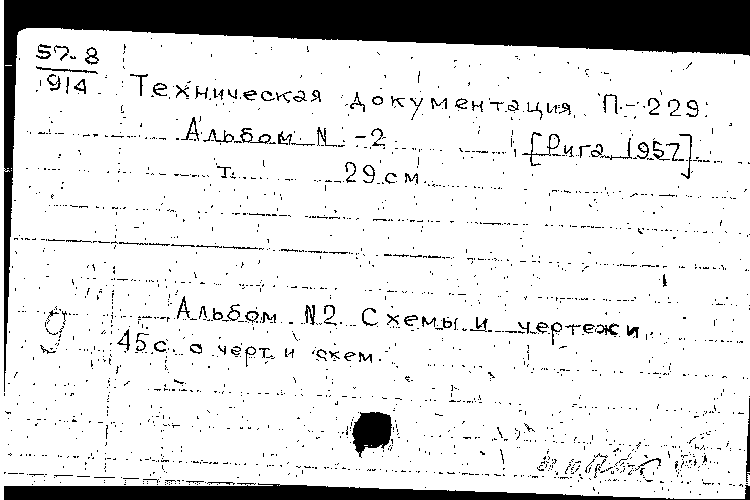 57-8
914
Техническая документация П-229.
Альбом N -2 [Рига, 1957]
т. 29 см.
Альбом N2 Схемы и чертежи.
9
45 с. с черт. и схем.